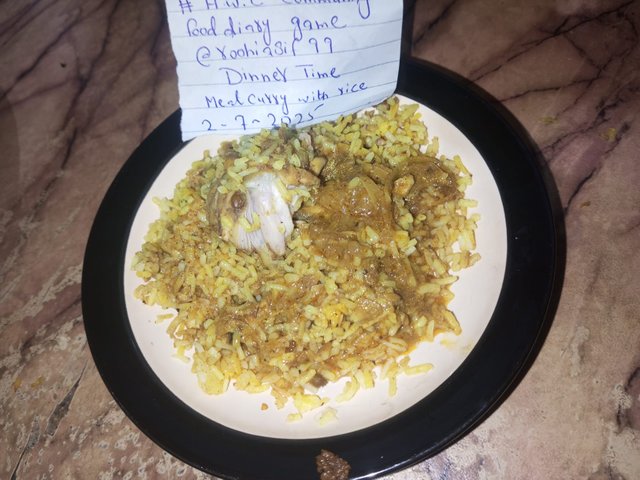 # H.W.C Community
food diary game
@roohiasif99
Dinner Time
Meat Curry with rice
2-7-2025